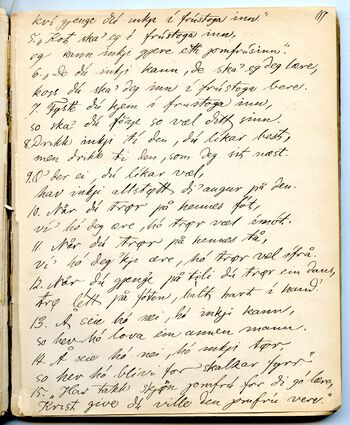 117
kvi gjenge du inkji i frustoga inn."
5. "Kot ska' eg i frustoga inn,
eg kann inkji gjera ett jomfrusinn."
6. "de du inkji kann, de ska' eg deg lære,
koss du ska' deg inn i frustoga bere.
7. Fysst du kjem i frustoga inn,
so ska' du föye so væl ditt sinn.
8. Drikk inkji ti den, du likar best,
men drikk ti den, som deg sit næst.
9. O' der ei, du likar væl,
hav inkji altstött di augur på den.
10. Når du trör på hennes fót,
vi' hó deg ære, hó trör væl imót.
11. Når du trör på hennes tå,
vi' hó deg 'kji ære, hó trör væl ifrå.
12. Når du gjenge på tili du trör em dans,
trö lett på fóten, halt hart i hand.
13. Å seie hó nei, hó inkji kann,
so hev hó lova ein annen mann.
14. Å seie hó nei, hó inkji tör,
so hev hó blivi for skalkar fyrr."
15. "Hav takk skjön jomfru for di gó læra,
Krist give du ville den jomfru vere."